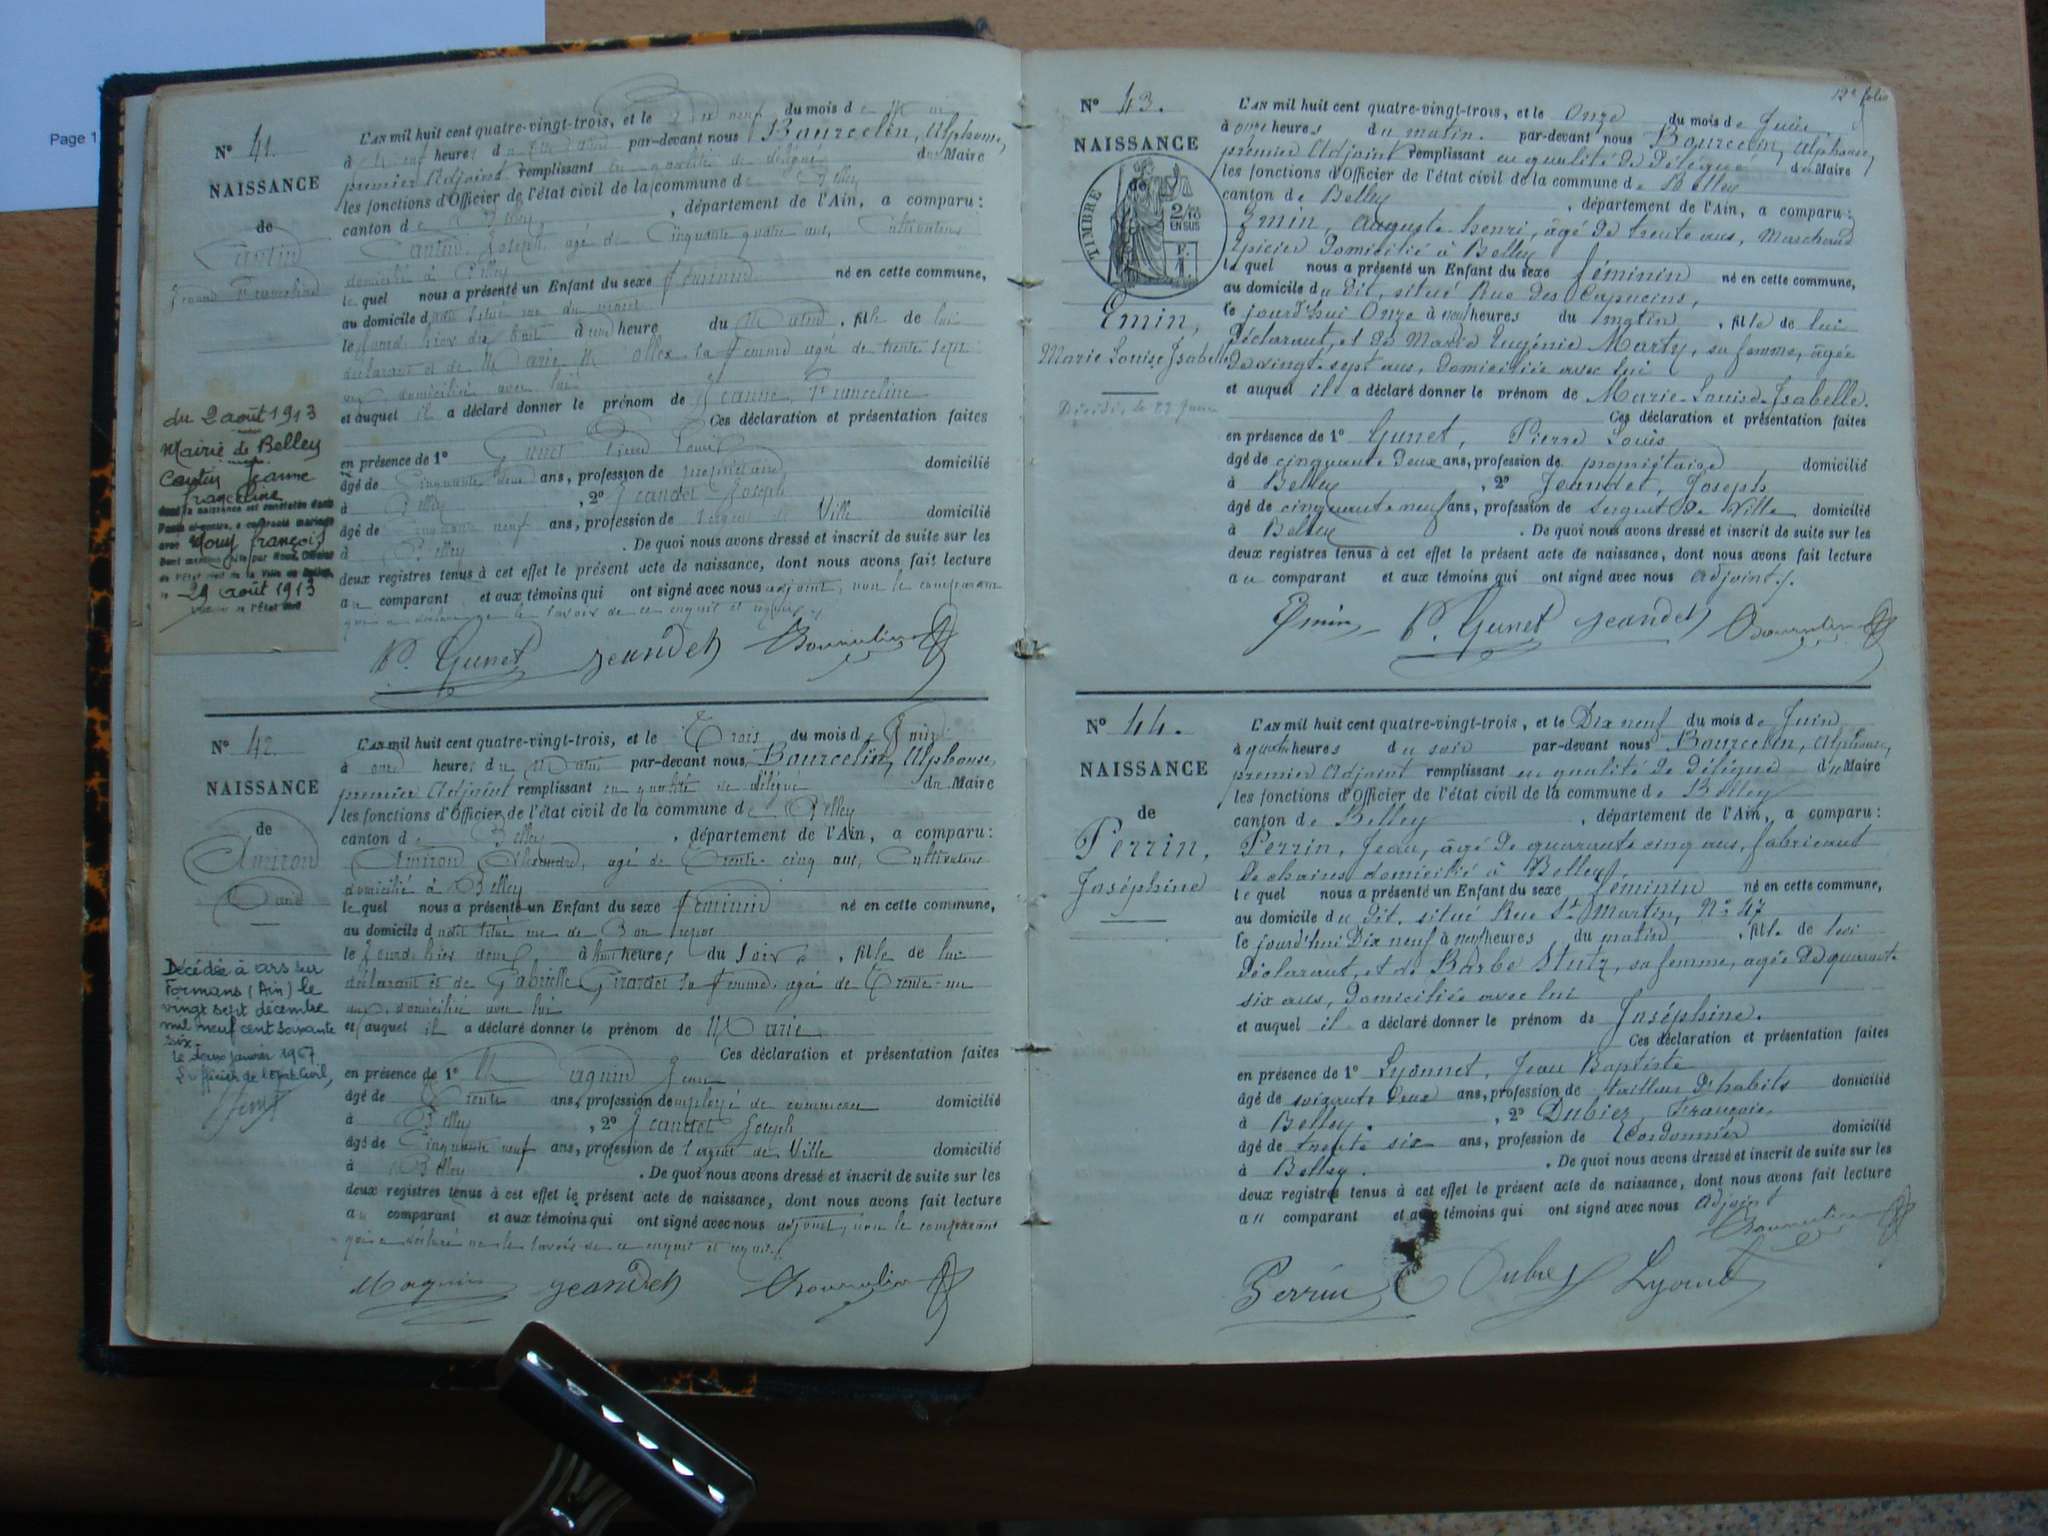 Page 1
N° 41.
NAISSANCE
de
Cantin
Jeanne Franceline
L'AN mil huit cent quatre-vingt-trois, et le Dix neuf du mois de Mai
à neuf heures du matin par-devant nous Bourcelin, Alphonse,
premier Adjoint remplissant en qualité de délégué du Maire
les fonctions d'Officier de l'état civil de la commune de Belley
canton de Belley, département de l'Ain, a comparu:
Cantin Joseph, agé de Cinquante quatre ans, Cultivateur
domicilié à Belley
lequel nous a présenté un Enfant du sexe féminin né en cette commune,
au domicile dudit situé rue du
le jourd'hier dix huit à heure du Matin, fille de lui
déclarant et de Marie Mollex sa femme agée de trente sept
ans, domiciliée avec lui
et auquel il a déclaré donner le prénom de Jeanne, Franceline
Ces déclaration et présentation faites
en présence de 1° Gunet Pierre Louis
âgé de Cinquante deux ans, profession de propriétaire domicilié
à Belley, 2° Jeandet Joseph
âgé de Cinquante neuf ans, profession de sergent de Ville domicilié
à Belley. De quoi nous avons dressé et inscrit de suite sur les
deux registres tenus à cet effet le présent acte de naissance, dont nous avons fait lecture
au comparant et aux témoins qui ont signé avec nous adjoint, non le comparant
qui a déclaré ne le savoir de ce enquis et requis.
P. Gunet Jeandet Bourcelin
du 2 août 1913
Mairie de Belley
Cantin Jeanne
franceline
dont la naissance est constatée dans
l'acte ci-contre, a contracté mariage
avec Rouy françois
Dont mention faite par Nous, Officier
de l'État civil de la Ville de Belley,
le 29 août 1913
L'Officier de l'État civil
N° 42.
NAISSANCE
de
Amiron
Marie
L'AN mil huit cent quatre-vingt-trois, et le Trois du mois de Juin
à onze heures du Matin par-devant nous Bourcelin, Alphonse,
premier Adjoint remplissant en qualité de délégué du Maire
les fonctions d'Officier de l'état civil de la commune de Belley
canton de Belley, département de l'Ain, a comparu:
Amiron Alexandre, agé de Trente-cinq ans, Cultivateur
domicilié à Belley
lequel nous a présenté un Enfant du sexe féminin né en cette commune,
au domicile dudit situé rue de Bon repos
le jourd'hier deux à heures du Soir, fille de lui
déclarant et de Gabrielle Girardet sa femme, agée de Trente-un
ans, domiciliée avec lui
et auquel il a déclaré donner le prénom de Marie
Ces déclaration et présentation faites
en présence de 1° Magnin Jean
âgé de Trente ans, profession de employé de commerce domicilié
à Belley, 2° Jeandet Joseph
âgé de Cinquante neuf ans, profession de sergent de Ville domicilié
à Belley. De quoi nous avons dressé et inscrit de suite sur les
deux registres tenus à cet effet le présent acte de naissance, dont nous avons fait lecture
au comparant et aux témoins qui ont signé avec nous adjoint, non le comparant
qui a déclaré ne le savoir de ce enquis et requis.
Magnin Jeandet Bourcelin
Décédée à Ars sur
Formans (Ain) le
vingt sept décembre
mil neuf cent soixante
six.
le deux janvier 1967
L'officier de l'Etat Civil,
12e folio
N° 43.
NAISSANCE
de
TIMBRE
2/10
EN SUS
Emin,
Marie Louise Isabelle
L'AN mil huit cent quatre-vingt-trois, et le Onze du mois de Juin
à onze heures du matin. par-devant nous Bourcelin, Alphonse,
premier Adjoint remplissant en qualité de Délégué du Maire
les fonctions d'Officier de l'état civil de la commune de Belley
canton de Belley, département de l'Ain, a comparu:
Emin, Auguste henri, âgé de trente ans, Marchand
Epicier Domicilié à Belley
lequel nous a présenté un Enfant du sexe féminin né en cette commune,
au domicile du dit, situé Rue des Capucins,
le jourd'hui Onze à heures du matin, fille de lui
Déclarant, et de Marie Eugénie Marty, sa femme, âgée
de vingt-sept ans, Domiciliée avec lui
et auquel il a déclaré donner le prénom de Marie-Louise-Isabelle.
Ces déclaration et présentation faites
en présence de 1° Gunet, Pierre Louis
âgé de cinquante deux ans, profession de propriétaire domicilié
à Belley, 2° Jeandet, Joseph
âgé de cinquante neuf ans, profession de Sergent de Ville domicilié
à Belley. De quoi nous avons dressé et inscrit de suite sur les
deux registres tenus à cet effet le présent acte de naissance, dont nous avons fait lecture
au comparant et aux témoins qui ont signé avec nous adjoint.
Emin P. Gunet Jeandet Bourcelin
N° 44.
NAISSANCE
de
Perrin,
Joséphine
L'AN mil huit cent quatre-vingt-trois, et le Dix neuf du mois de Juin
à quatre heures du soir par-devant nous Bourcelin, Alphonse,
premier Adjoint remplissant en qualité de Délégué du Maire
les fonctions d'Officier de l'état civil de la commune de Belley
canton de Belley, département de l'Ain, a comparu:
Perrin, Jean, âgé de quarante cinq ans, fabricant
de chaises domicilié à Belley,
lequel nous a présenté un Enfant du sexe féminin né en cette commune,
au domicile du dit. situé Rue St Martin, N° 47
le jourd'hui Dix neuf à neuf heures du matin, fille de lui
Déclarant, et de Barbe Stutz, sa femme, agée de quarante
six ans, Domiciliée avec lui
et auquel il a déclaré donner le prénom de Joséphine.
Ces déclaration et présentation faites
en présence de 1° Lyonnet, Jean Baptiste
âgé de soixante deux ans, profession de tailleur d'habits domicilié
à Belley., 2° Dubier, François,
âgé de trente six ans, profession de Cordonnier domicilié
à Belley. De quoi nous avons dressé et inscrit de suite sur les
deux registres tenus à cet effet le présent acte de naissance, dont nous avons fait lecture
au comparant et aux témoins qui ont signé avec nous Adjoint
Bourcelin
Perrin Lyonnet